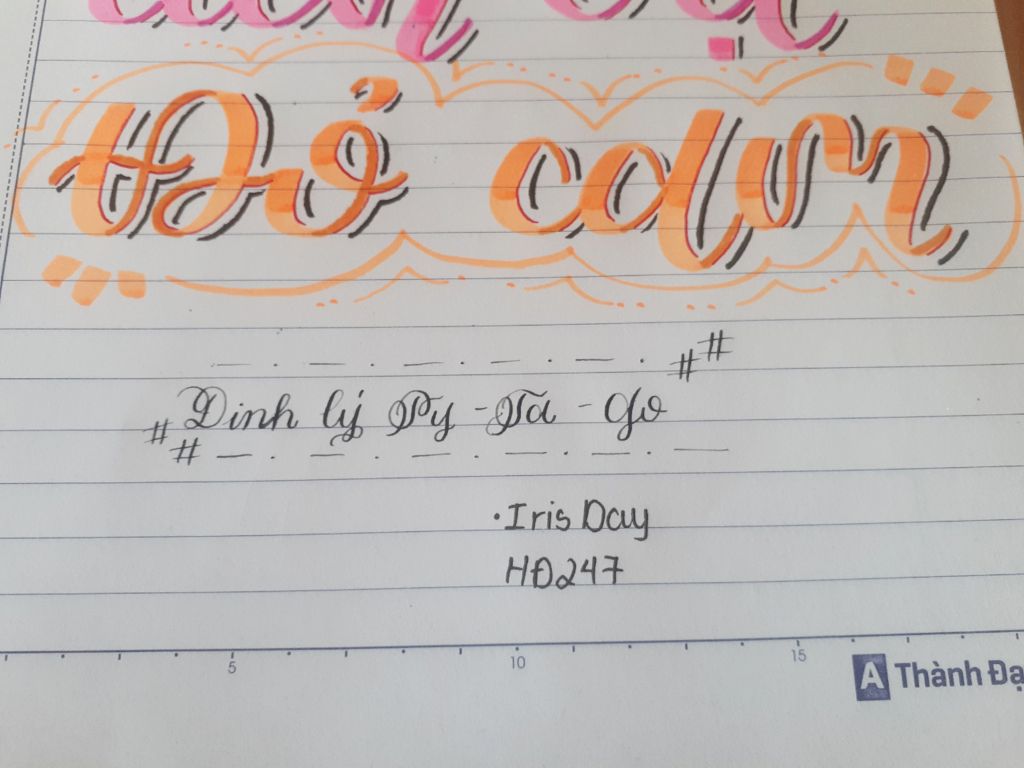 Đỏ cam
Đinh lý Py - Ta - Go
· Iris Day
HĐ247
5 10 15
A Thành Đạ